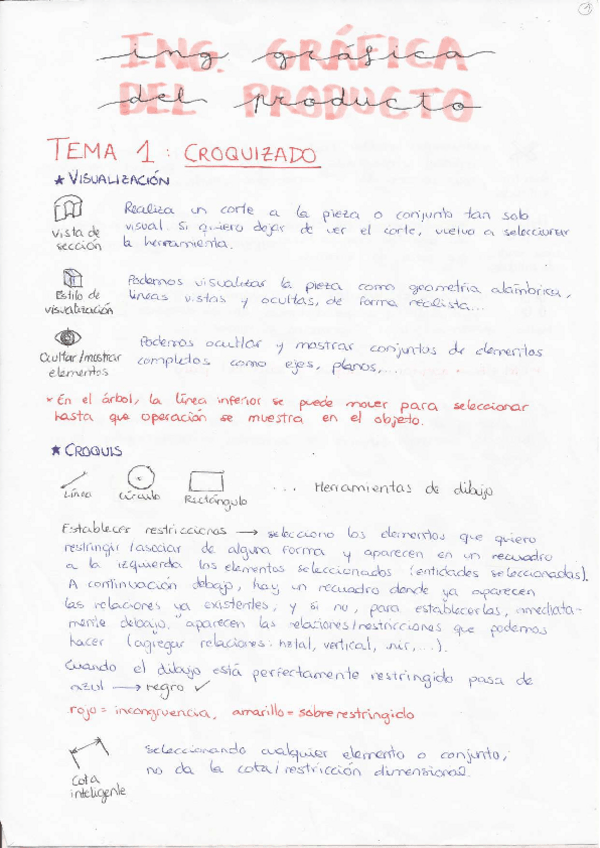 1
ING. GRÁFICA
DEL PRODUCTO
TEMA 1: CROQUIZADO
★ VISUALIZACIÓN
Vista de
sección
Realiza un corte a la pieza o conjunto tan solo
visual. Si quiero dejar de ver el corte, vuelvo a seleccionar
la herramienta.
Estilo de
visualización
Podemos visualizar la pieza como geometría alámbrica,
líneas vistas y ocultas, de forma realista...
Ocultar/mostrar
elementos
Podemos ocultar y mostrar conjuntos de elementos
completos como ejes, planos,...
En el árbol, la línea inferior se puede mover para seleccionar
hasta que operación se muestra en el objeto.
★ CROQUIS
Línea
Círculo
Rectángulo
... Herramientas de dibujo
Establecer restricciones → selecciono los elementos que quiero
restringir/asociar de alguna forma y aparecen en un recuadro
a la izquierda los elementos seleccionados (entidades seleccionadas).
A continuación debajo, hay un recuadro donde ya aparecen
las relaciones ya existentes, y si no, para establecerlas, inmediata-
mente debajo, aparecen las relaciones/restricciones que podemos
hacer (agregar relaciones: hztal, vertical,
Cuando el dibujo está perfectamente restringido pasa de
azul → negro ✓
rojo = incongruencia, amarillo = sobrerestringido
Cota
inteligente
Seleccionando cualquier elemento o conjunto,
no da la cota/restricción dimensional.